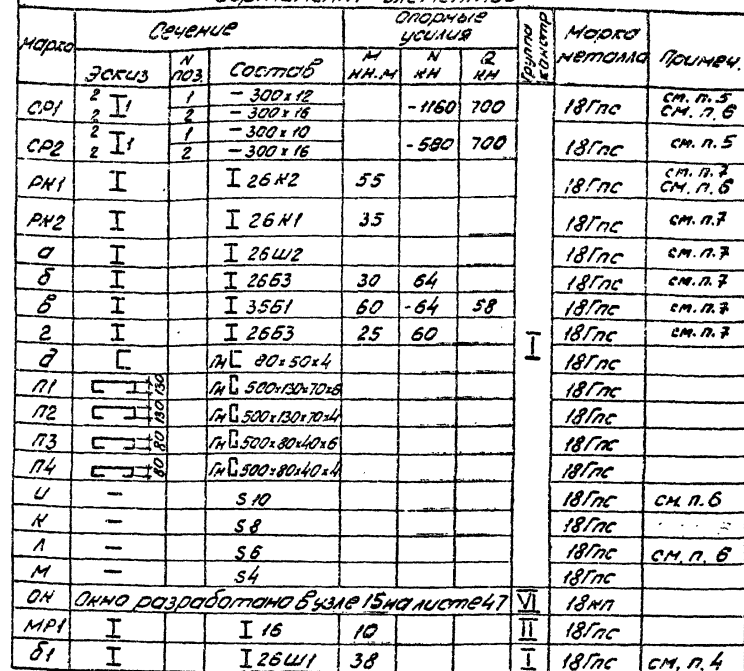 Сечение
Опорные усилия
Группа констр
Марка металла
Примеч.
Марка
Эскиз
N поз.
Состав
М кН.м
N кН
Q кН
СР1 2 2 I 1 1 - 300x12 -1160 700 18Гпс см. п. 5
2 - 300x16 см. п. 6
СР2 2 2 I 1 1 - 300x10 -580 700 18Гпс см. п. 5
2 - 300x16
РК1 I I 26К2 55 18Гпс см. п. 7
см. п. 6
РК2 I I 26К1 35 18Гпс см. п. 7
а I I 26Ш2 18Гпс см. п. 7
б I I 26Б3 30 64 18Гпс см. п. 7
в I I 35Б1 60 -64 58 18Гпс см. п. 7
г I I 26Б3 25 60 I 18Гпс см. п. 7
д [ Гн[ 80x50x4 18Гпс
П1 130 Гн[ 500x130x70x6 18Гпс
П2 130 Гн[ 500x130x70x4 18Гпс
П3 80 Гн[ 500x80x40x6 18Гпс
П4 80 Гн[ 500x80x40x4 18Гпс
И - S10 18Гпс см. п. 6
К - S8 18Гпс
Л - S6 18Гпс см. п. 6
М - S4 18Гпс
ОК Окно разработано в узле 15 на листе 47 VI 18кп
МР1 I I 16 10 II 18Гпс
б1 I I 26Ш1 38 I 18Гпс см. п. 4